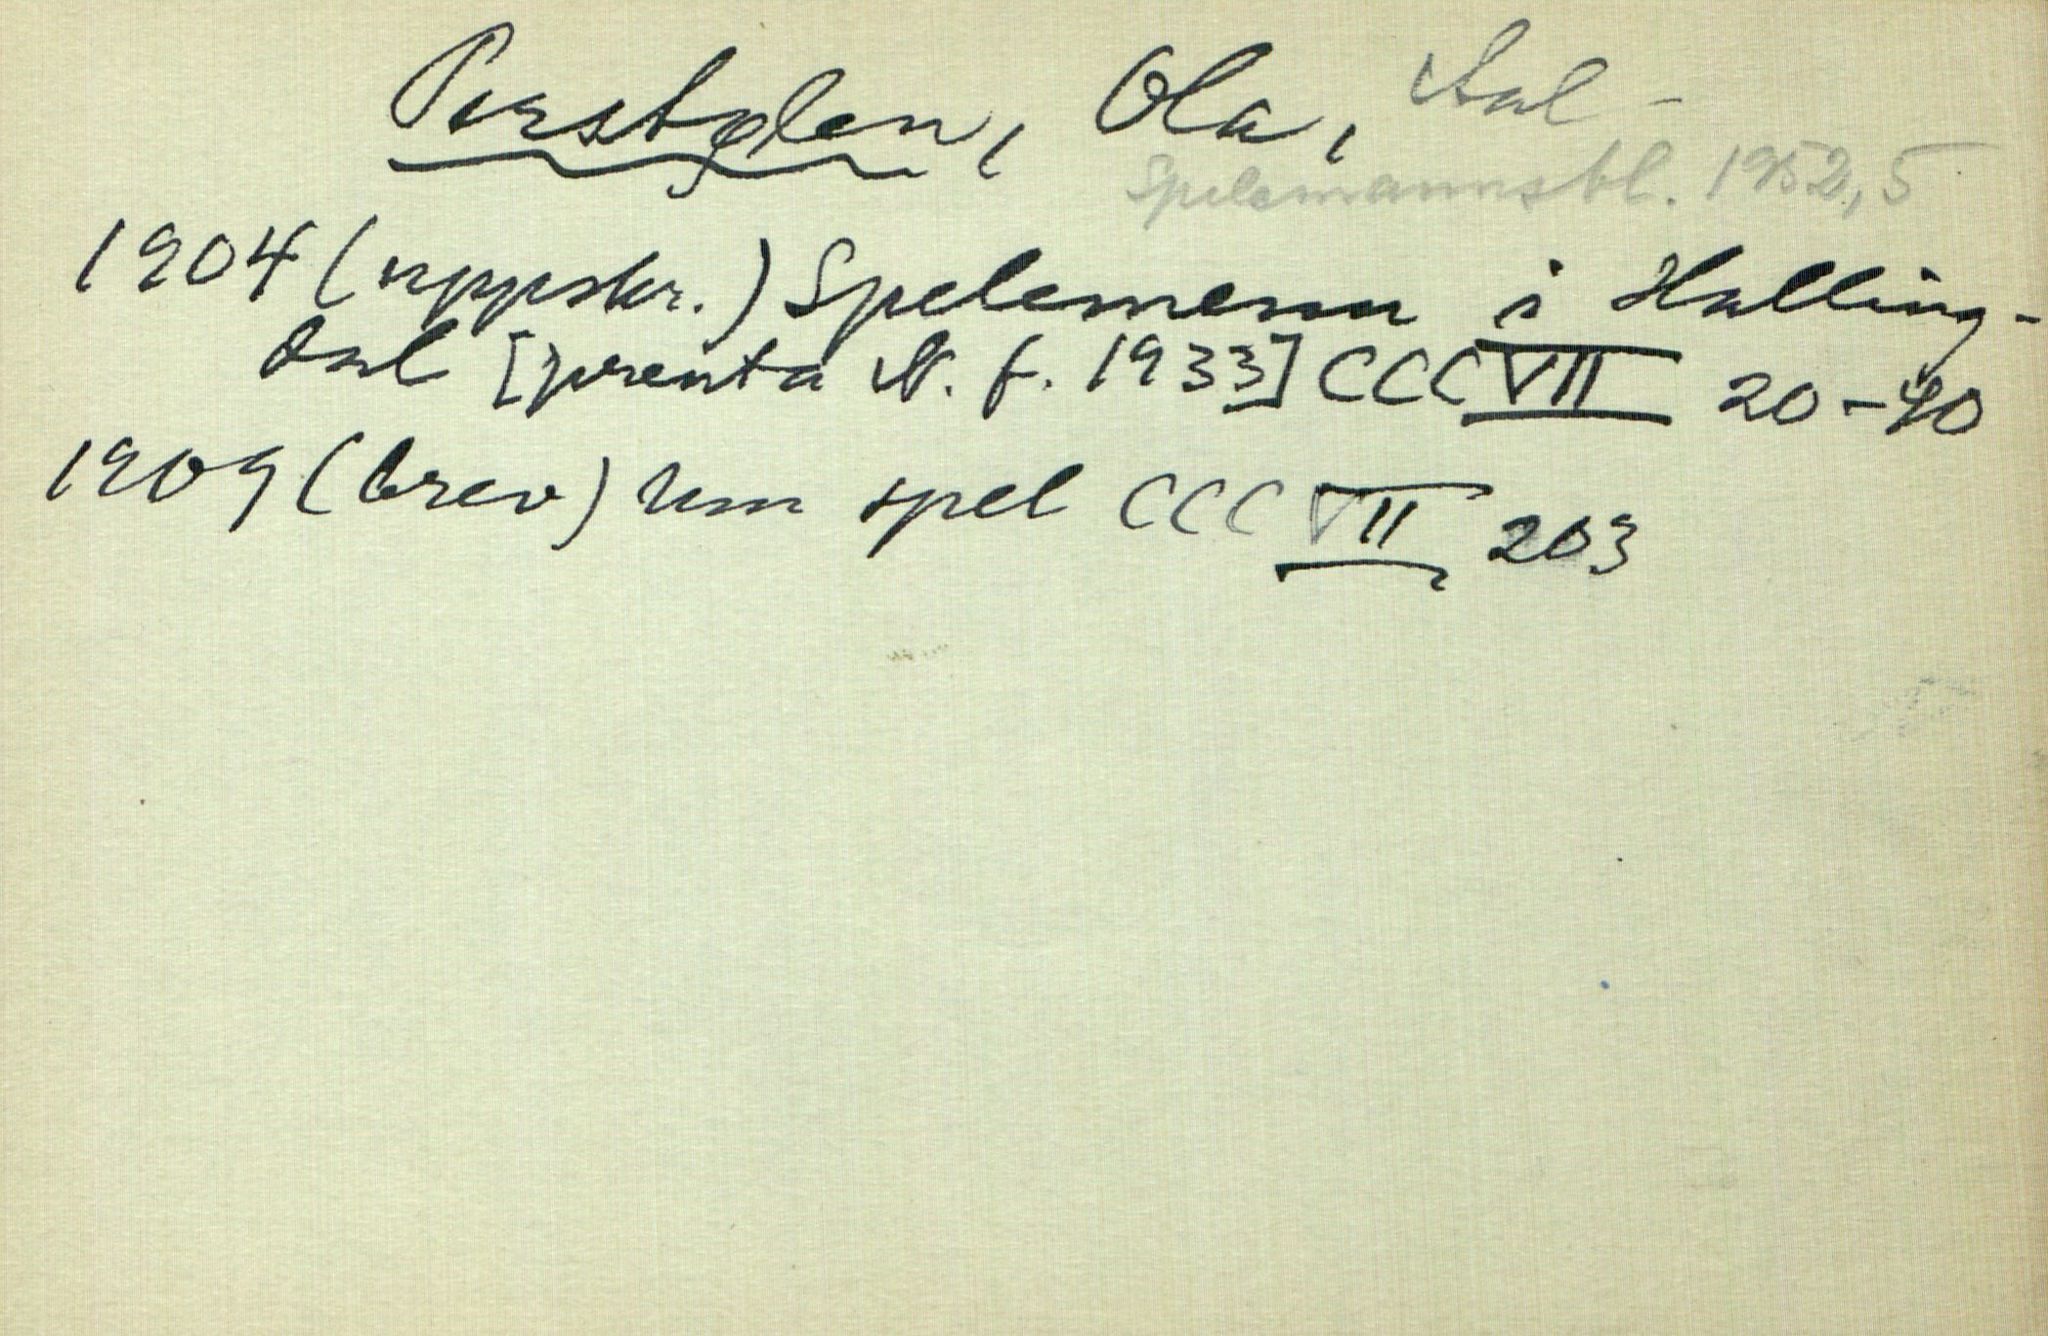 Perstølen, Ola, Aal -
Spelemannsbl. 1952, 5
1904 (uppskr.) Spelemenn i Halling-
dal [prenta N. f. 1933] CCCVII 20-40
1909 (brev) Um spel CCCVII 203